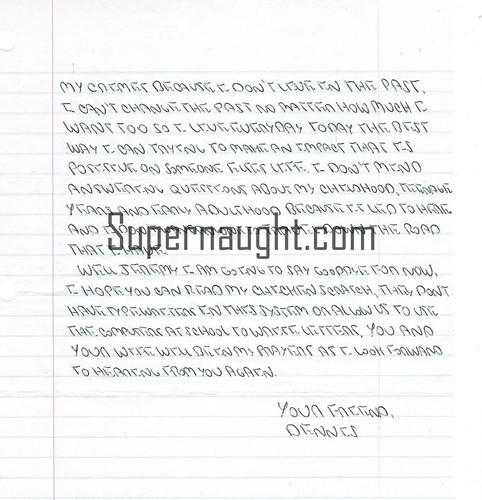 MY CRIMES BECAUSE I DON'T LIVE IN THE PAST,
I CAN'T CHANGE THE PAST NO MATTER HOW MUCH I
WANT TOO SO I LIVE EVERYDAY TODAY THE BEST
WAY I CAN TRYING TO MAKE AN IMPACT THAT IS
POSITIVE ON SOMEONE ELSES LIFE. I DON'T MIND
ANSWERING QUESTIONS ABOUT MY CHILDHOOD, TEENAGE
YEARS AND EARLY ADULTHOOD BECAUSE IT LED TO HERE
AND I DON'T THE ROAD
Supernaught.com
THAT I HAVE.
WELL JEREMY I AM GOING TO SAY GOODBYE FOR NOW,
I HOPE YOU CAN READ MY CHICKEN SCRATCH, THEY DON'T
HAVE TYPEWRITERS IN THIS SYSTEM OR ALLOW US TO USE
THE COMPUTERS AT SCHOOL TO WRITE LETTERS. YOU AND
YOUR WIFE WILL BE IN MY PRAYERS AS I LOOK FORWARD
TO HEARING FROM YOU AGAIN.
YOUR FRIEND,
DENNIS